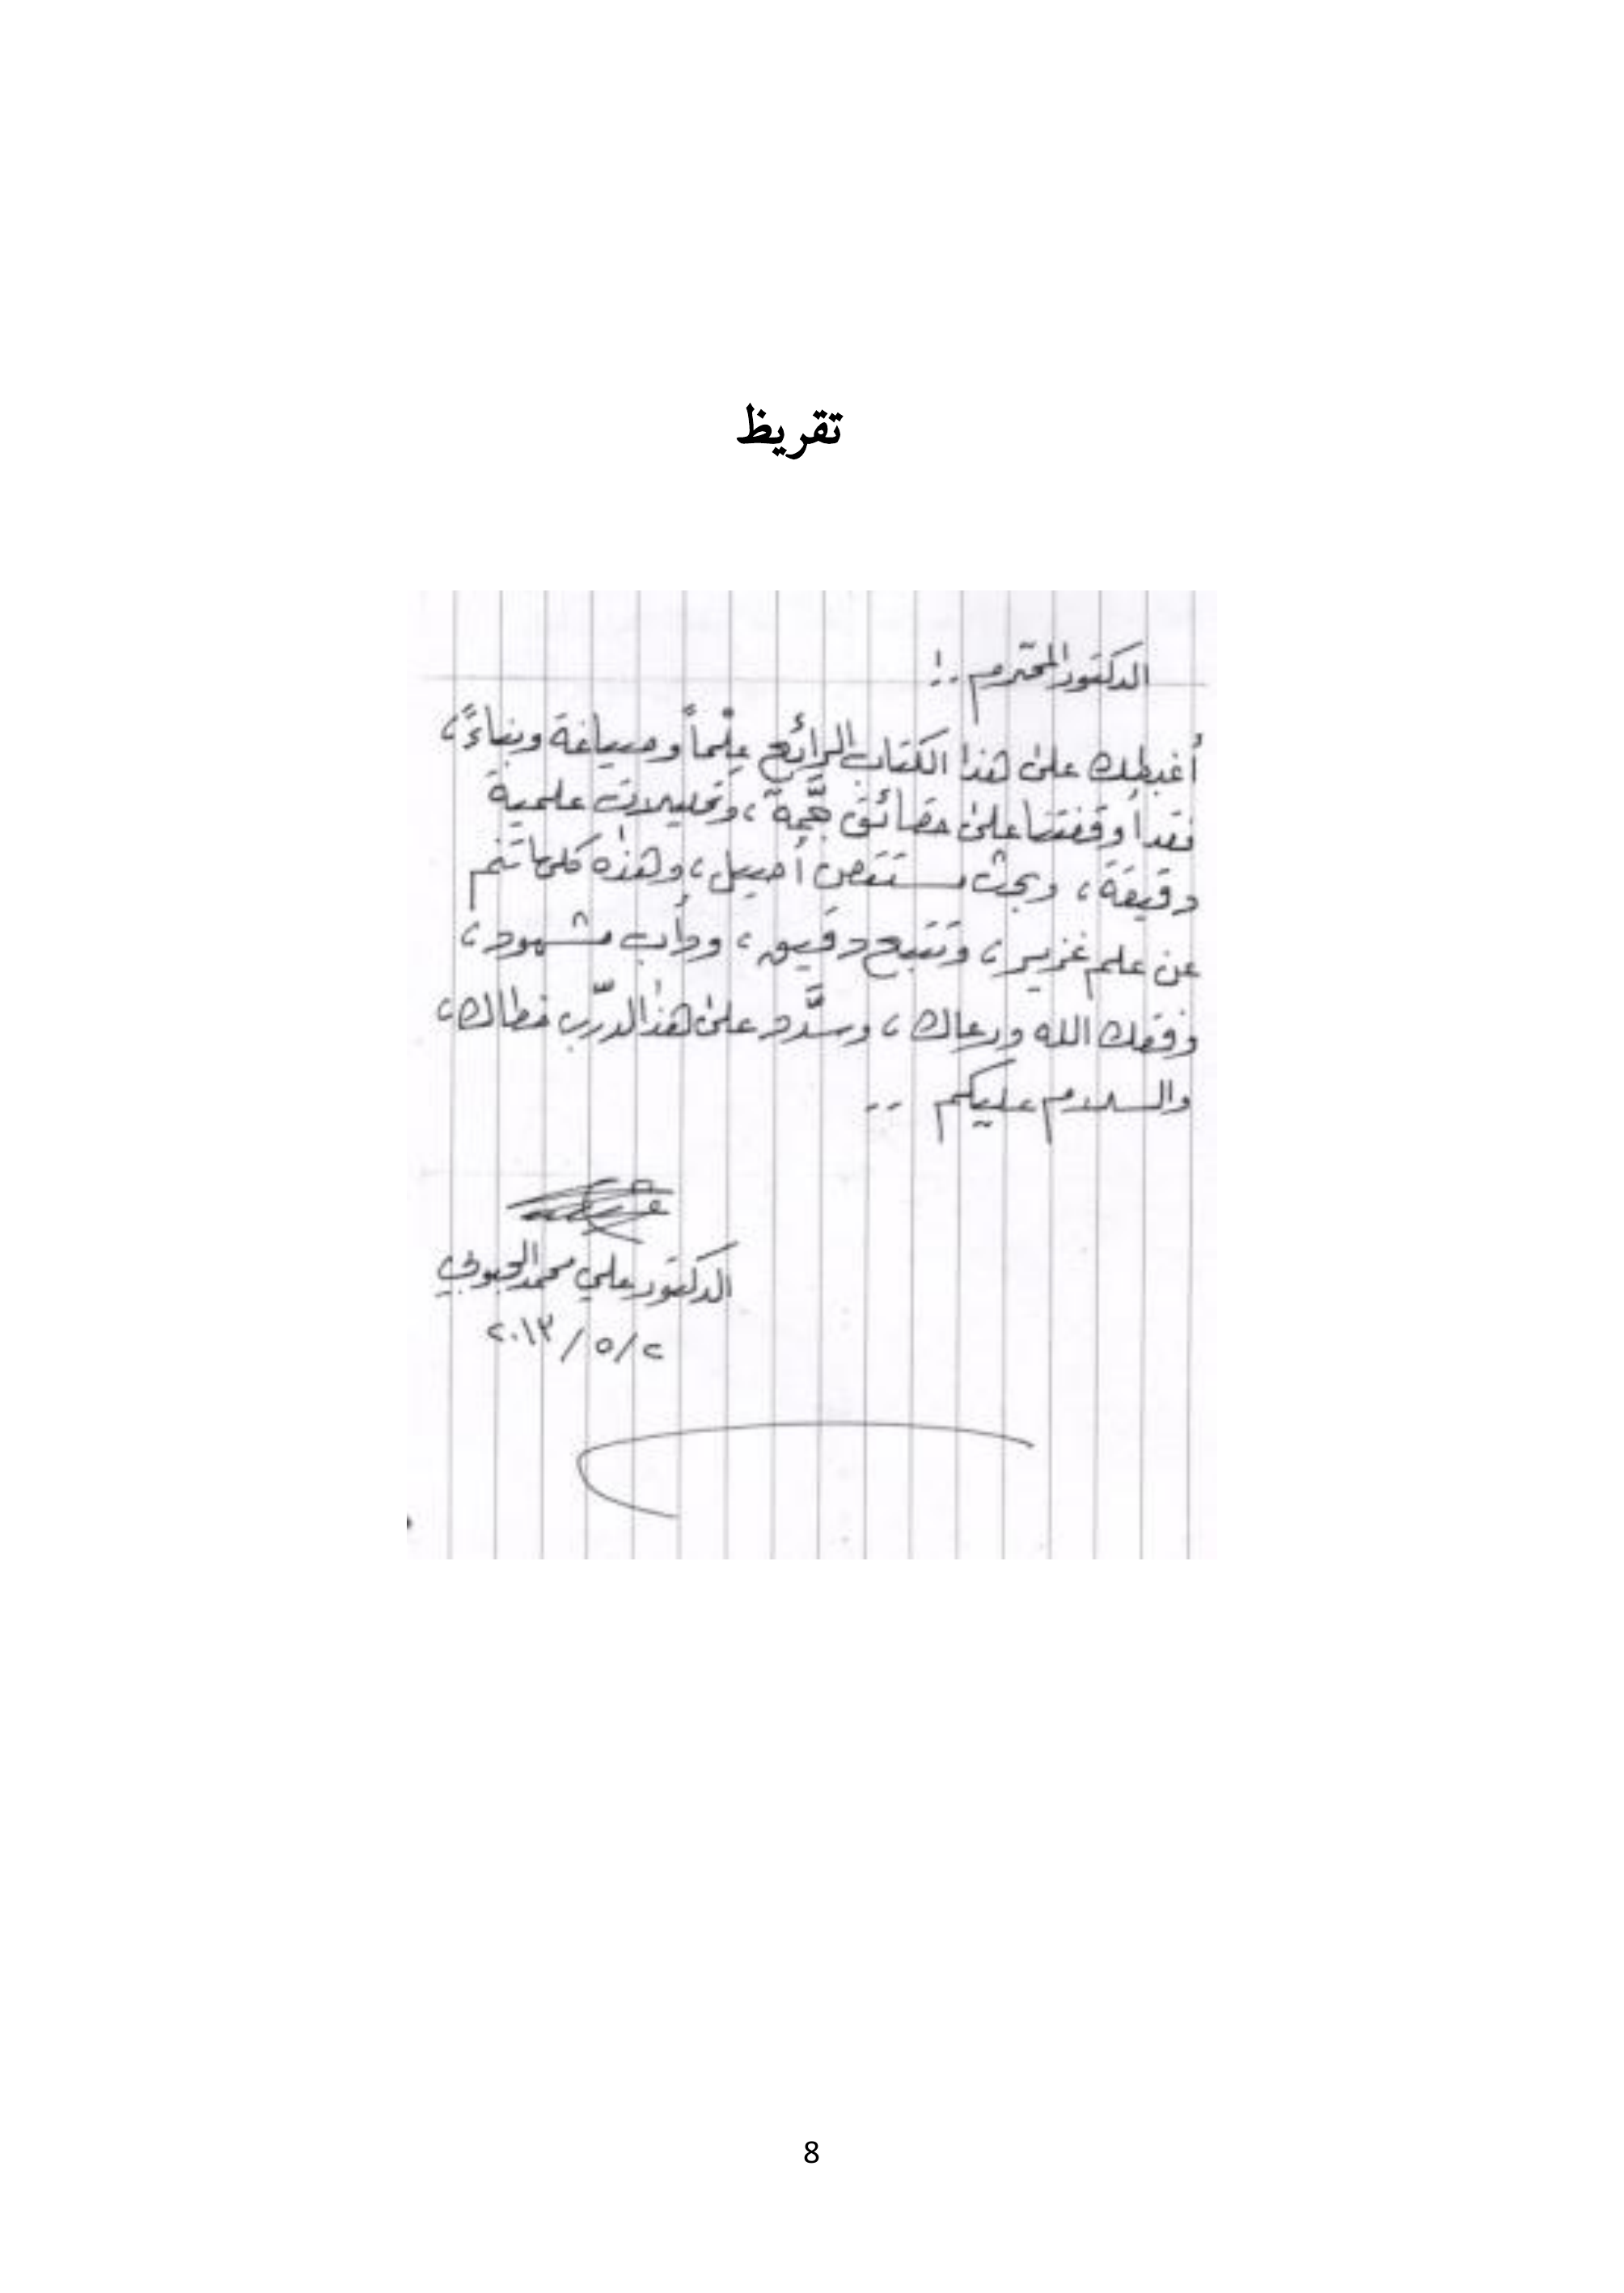 تقريظ
الدكتور المحترم ..!
أغبطك على هذا الكتاب الرائع عِلْماً وصياغة وبناءً،
فقد أوقفتنا على حقائق جَمَّة، وتحليلات علمية
دقيقة، وبحث مستقصٍ أصيل، وهذه كلها تنم
عن علم غزير، وتَتَبع دقيق، ودأب مشهود،
وفقك الله ورعاك، وسدَّد على هذا الدّرب خطاك،
والسلام عليكم ..
الدكتور علي محمد الحبوبي
٢٠١٣/٥/٢
8